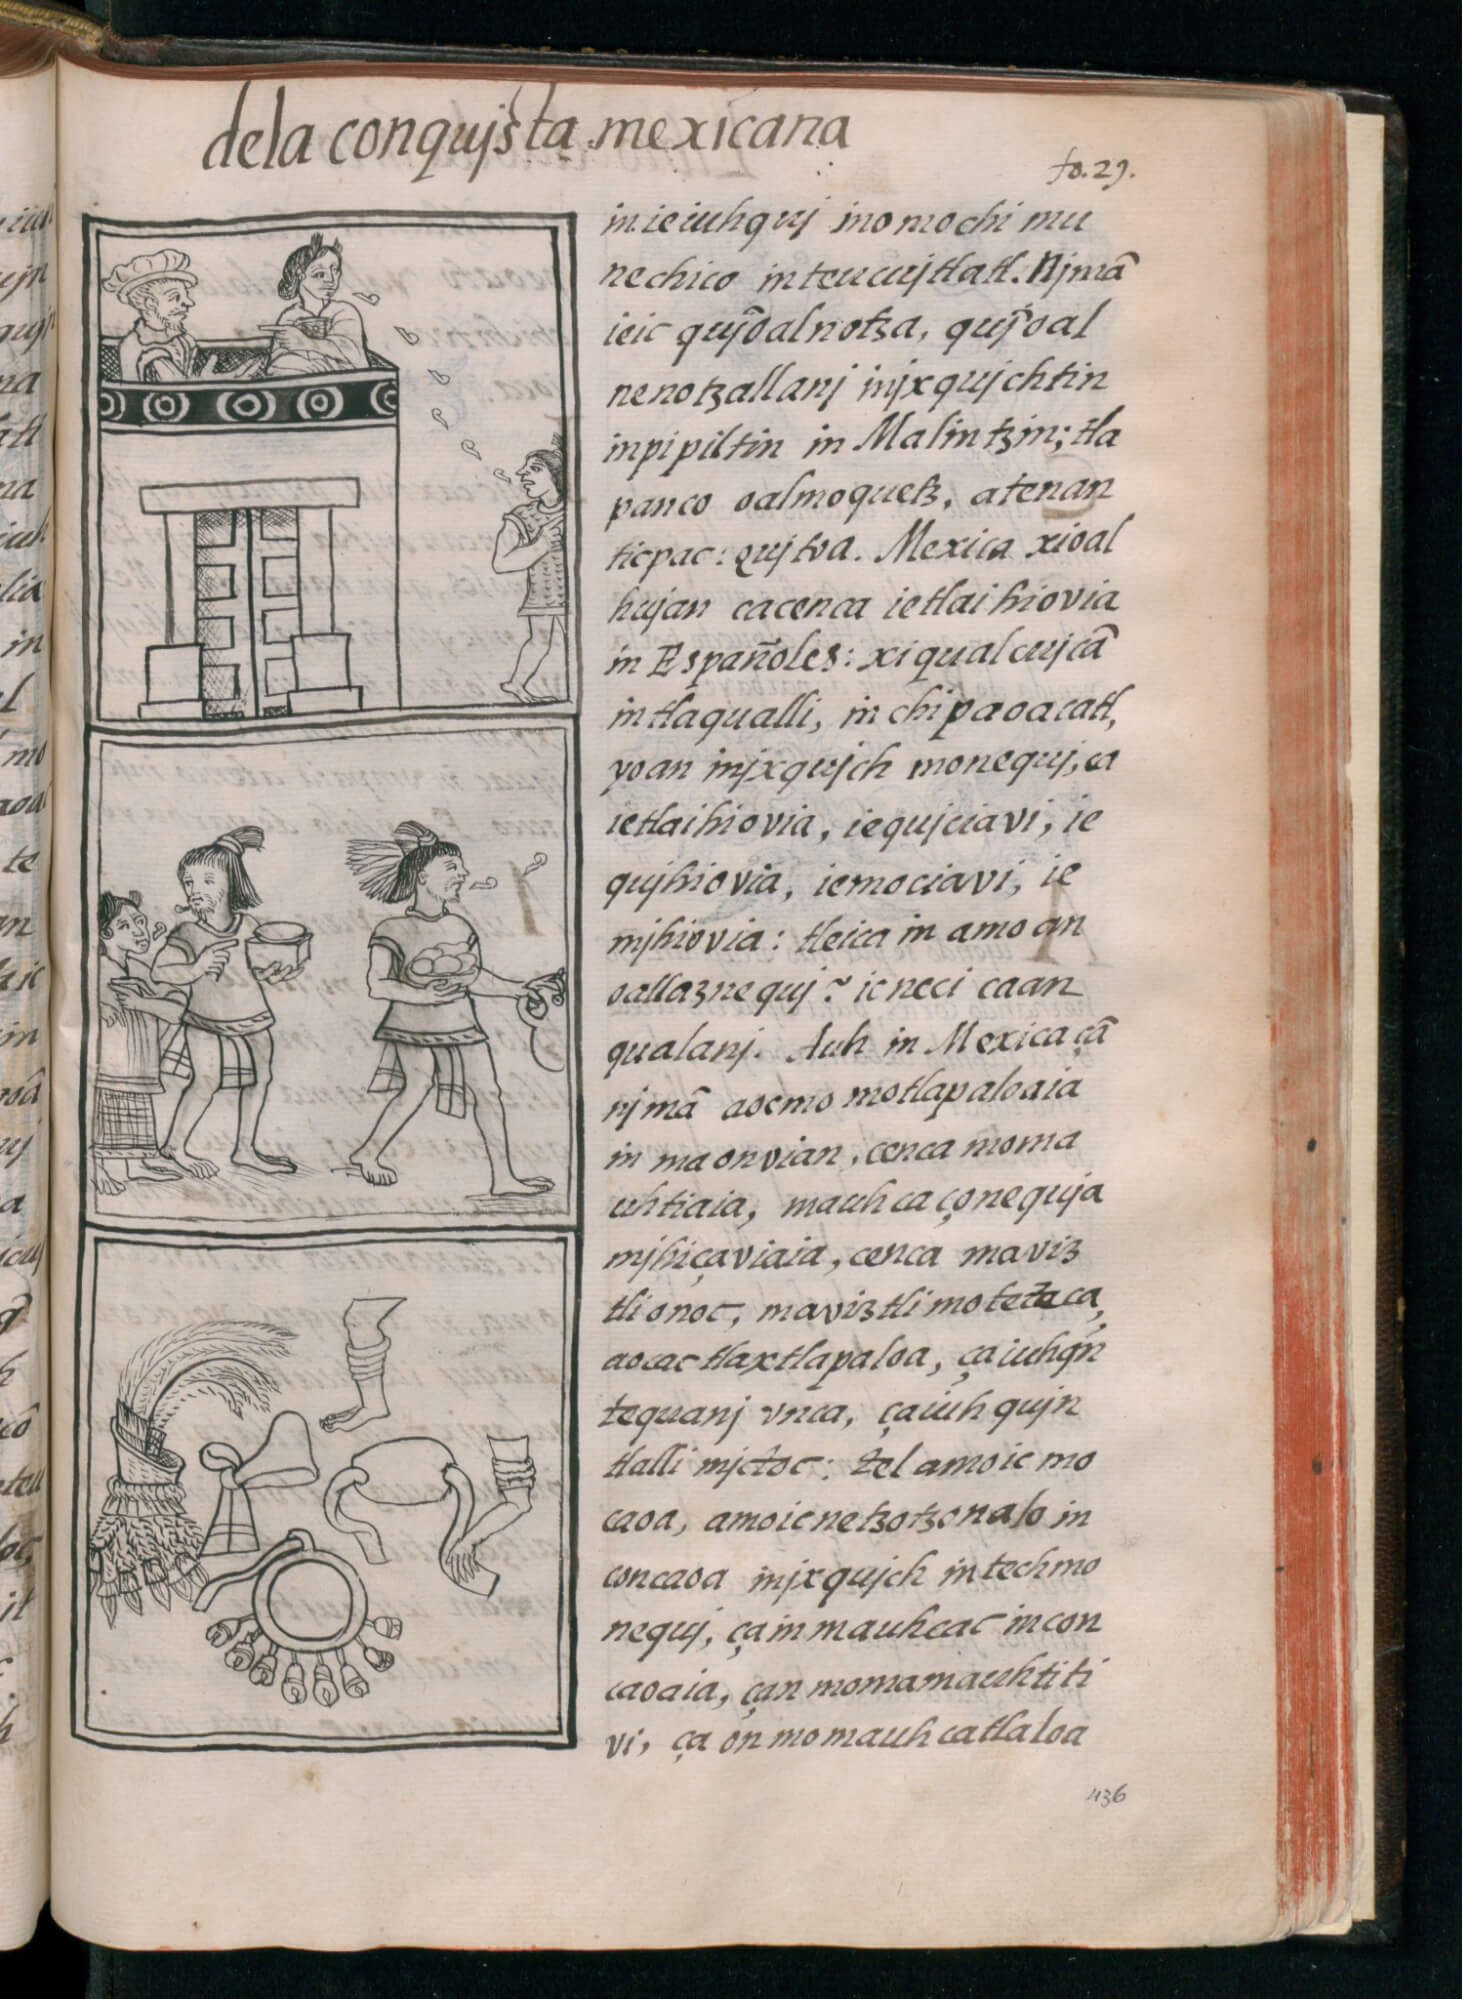 dela conqujsta mexicana
fo. 29.
in ie iuhquj in omochi mu
nechico in teucujtlatl. Njmā
ieic quj̄oalnotza, quj̄oal
nenotzallanj injxqujchtin
inpipiltin in Malintzin; tla
panco oalmoquetz, atenan
ticpac: qujtoa. Mexica xioal
hujan ca cenca ie tlaihiovia
in Españoles: xiqualcujcā
in tlaqualli, in chipaoacatl,
yoan injxqujch monequj, ca
ie tlaihiovia, ie qujciavi, ie
qujhiovia, ie mociavi, ie
mjhiovia: tleica in amo an
oallaznequj? ic neci ca an
qualanj. Auh in Mexica çā
njmā aocmo motlapaloaia
in ma onvian, cenca moma
uhtiaia, mauhcaçonequja
mjhiçaviaia, cenca maviz
tli onoc, maviztli moteteca,
aocac tlaxtlapaloa, ça iuhqn̄
tequanj vnca, ça iuhqujn
tlalli mjctoc: tel amo ic mo
caoa, amo ic netzotzonalo in
concaoa injxqujch intech mo
nequj, ça in mauhcac in con
caoaia, çan momamauhtiti
vi, ça on momauhcatlaloa
436